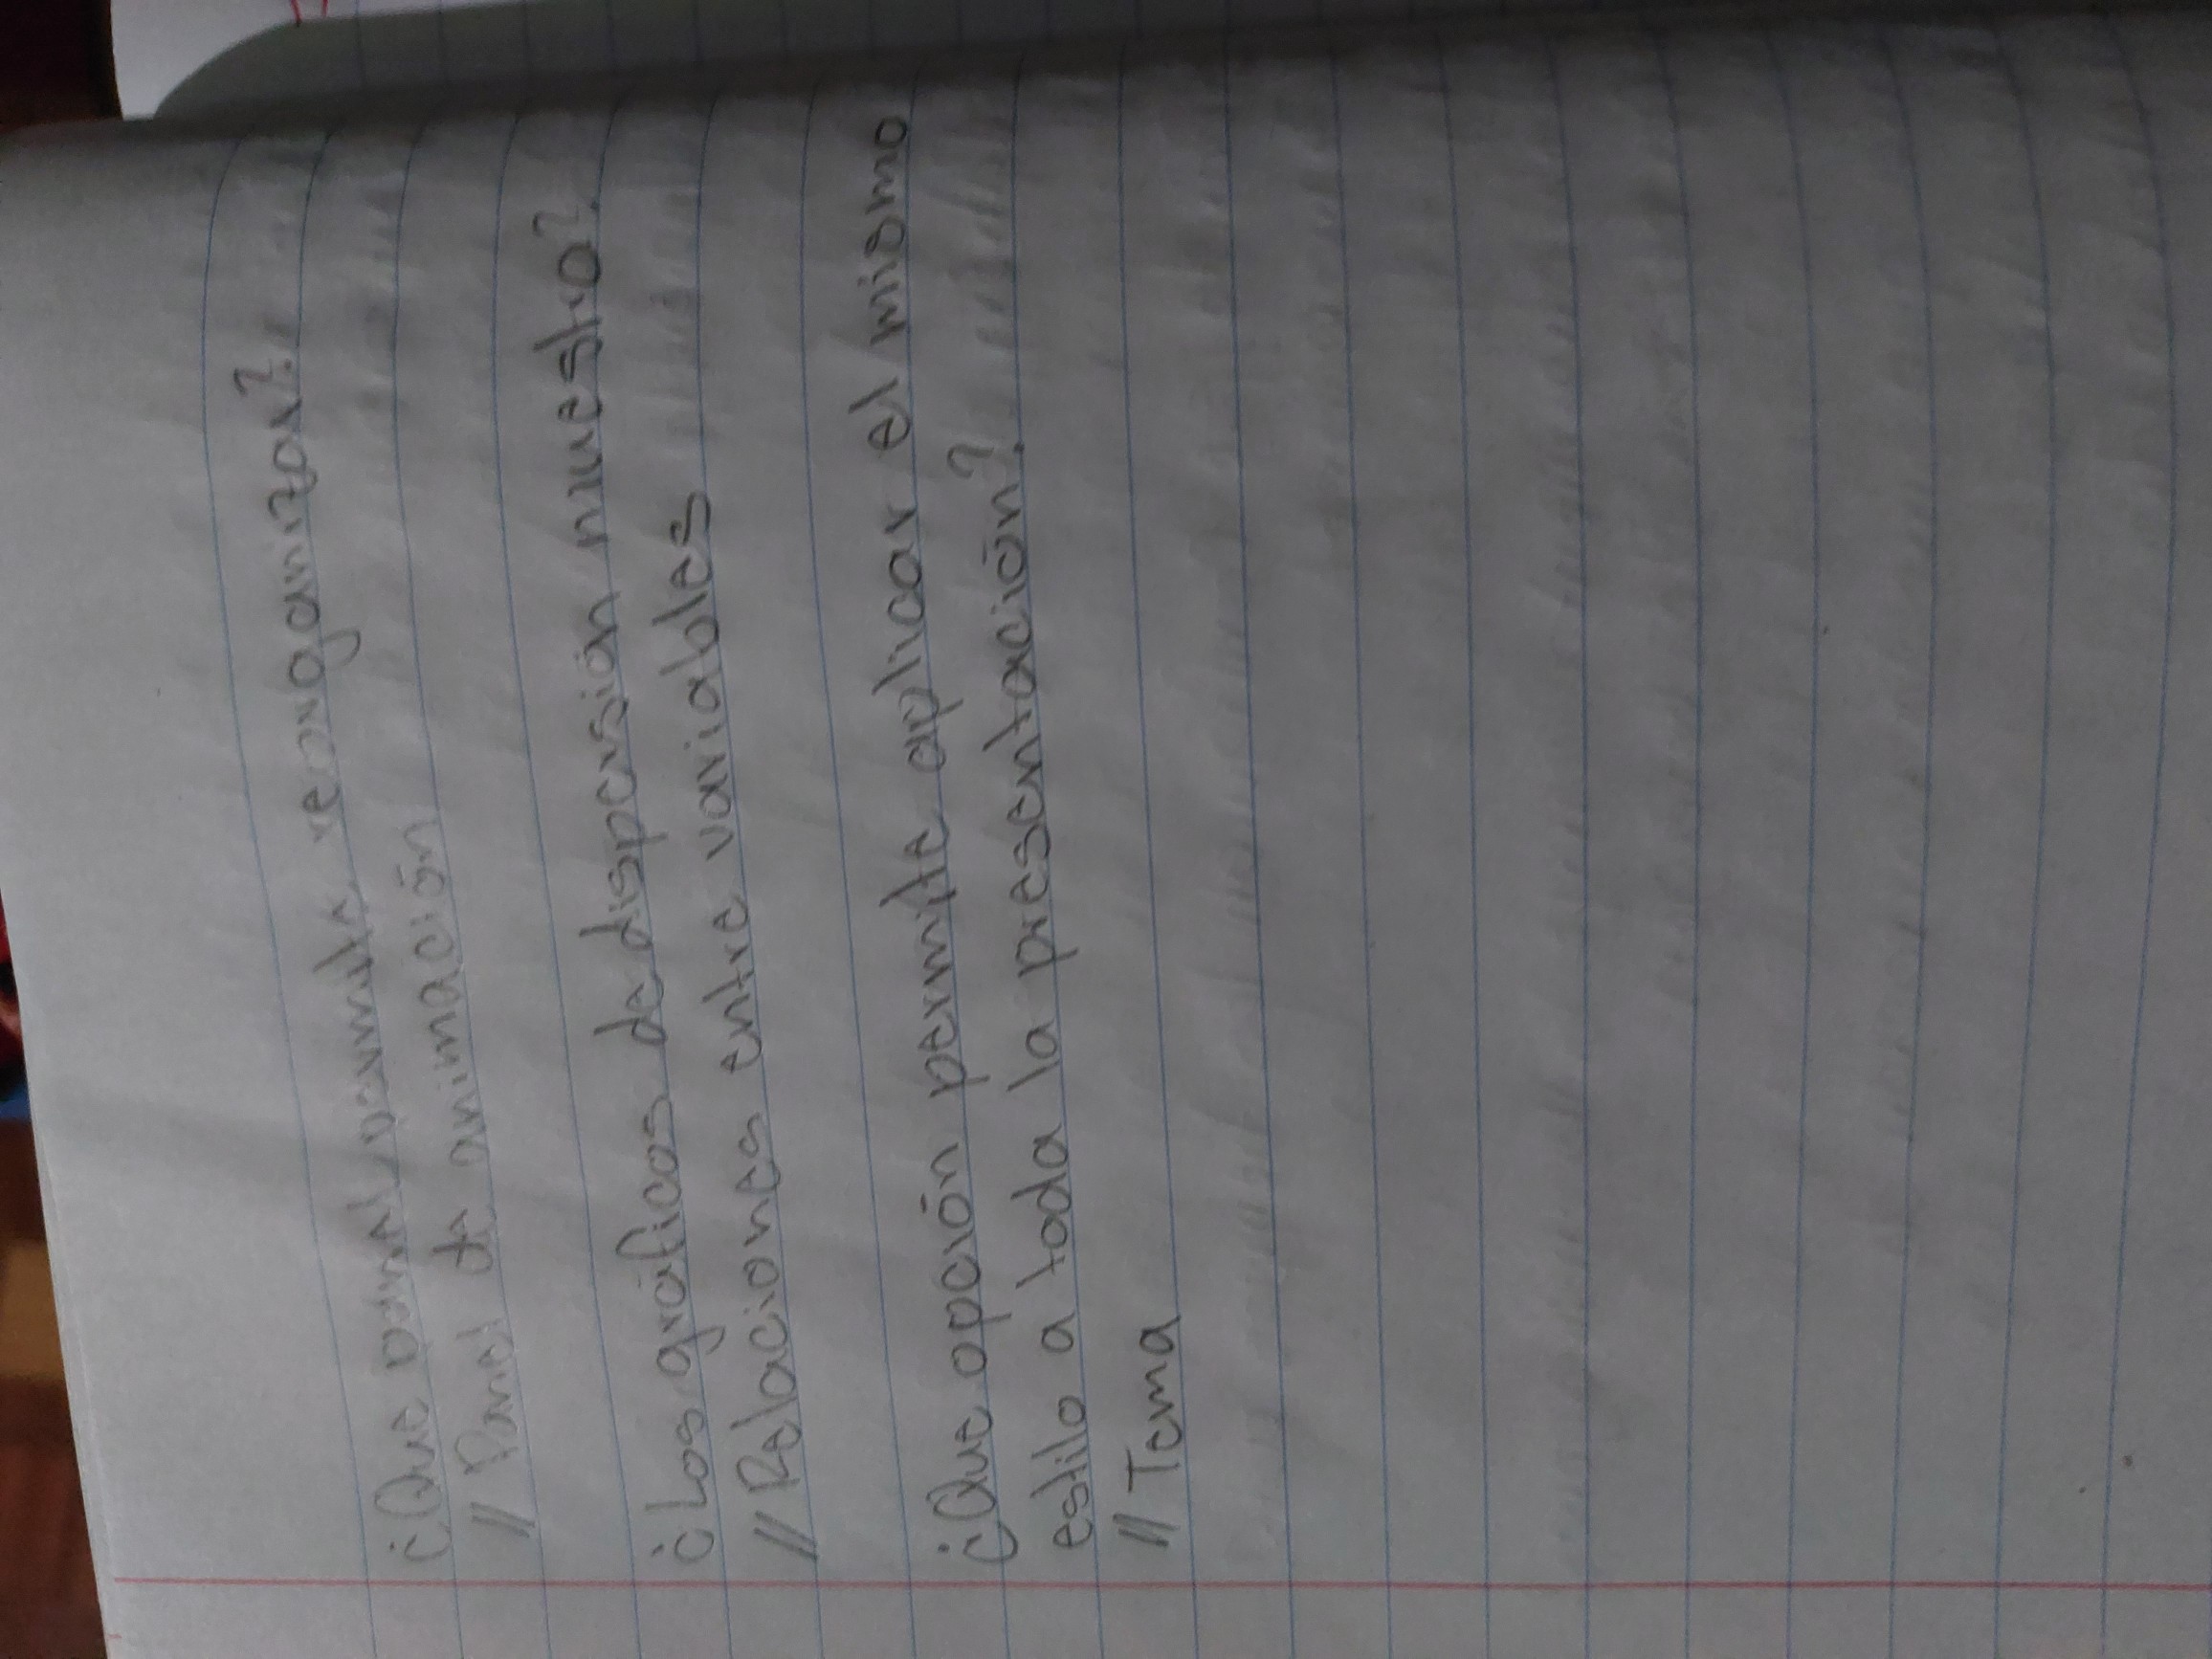 ¿Que panel permite reorganizar?
// Panel de animación
¿Los gráficos de dispersión muestra?
// Relaciones entre variables
¿Que opción permite aplicar el mismo
estilo a toda la presentación?
// Tema